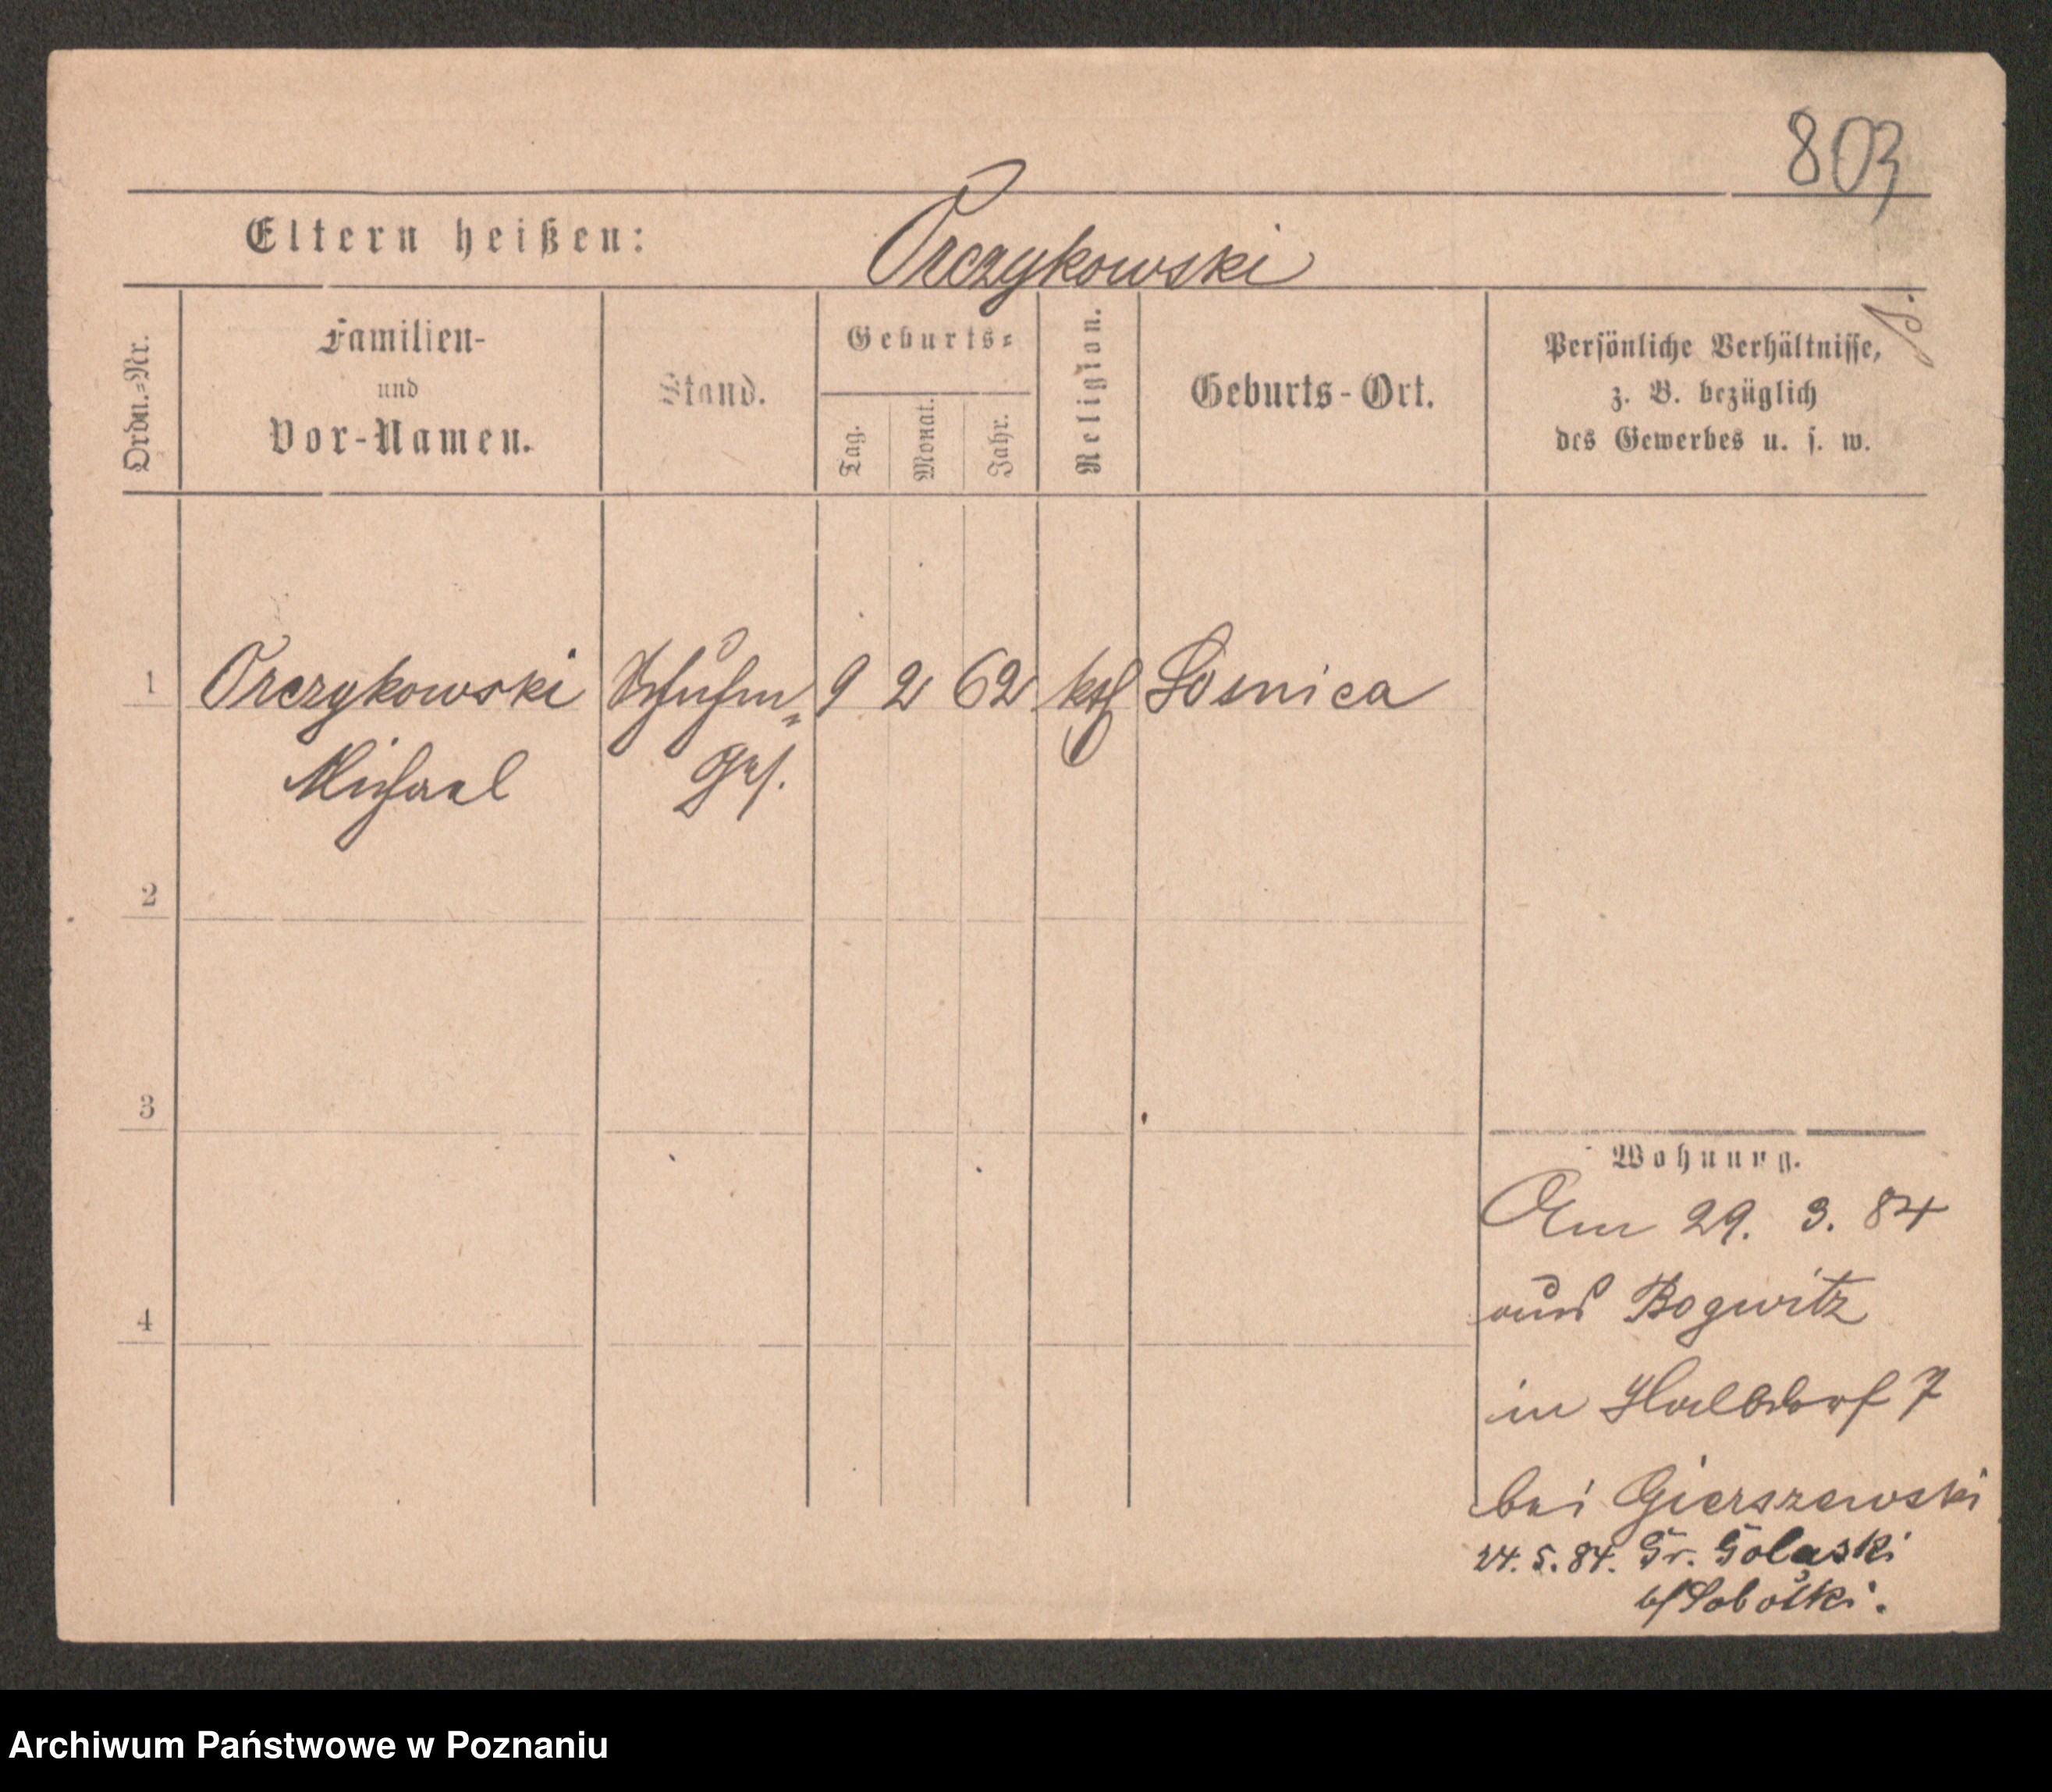 803
Eltern heißen: Orczykowski
Ordn.=Nr.
Familien-
und
Vor-Namen.
Stand.
Geburts=
Tag.
Monat.
Jahr.
Religion.
Geburts-Ort.
Persönliche Verhältnisse,
z. B. bezüglich
des Gewerbes u. s. w.
1 Orczykowski Schuhm= 9 2 62 kth Losnica
Michael Ges.
2
3
4
Wohnung.
Am 29. 3. 84
aus Bogwitz
in Halbdorf 7
bei Gierszewski
24. 5. 84. Gr. Golaski
b/ Sobolki.
Archiwum Państwowe w Poznaniu